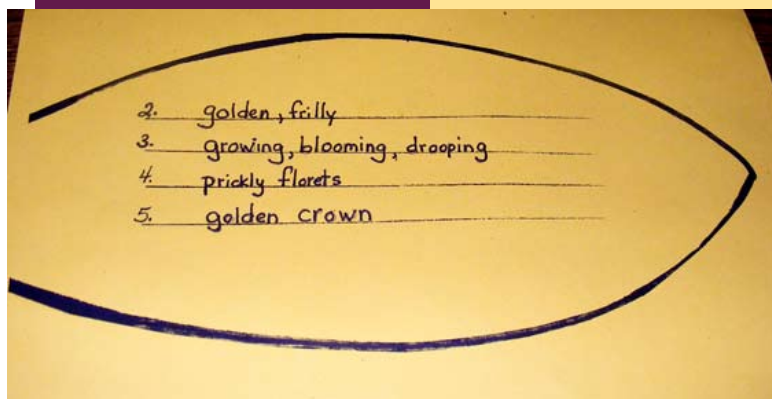 2. golden, frilly
3. growing, blooming, drooping
4. prickly florets
5. golden crown